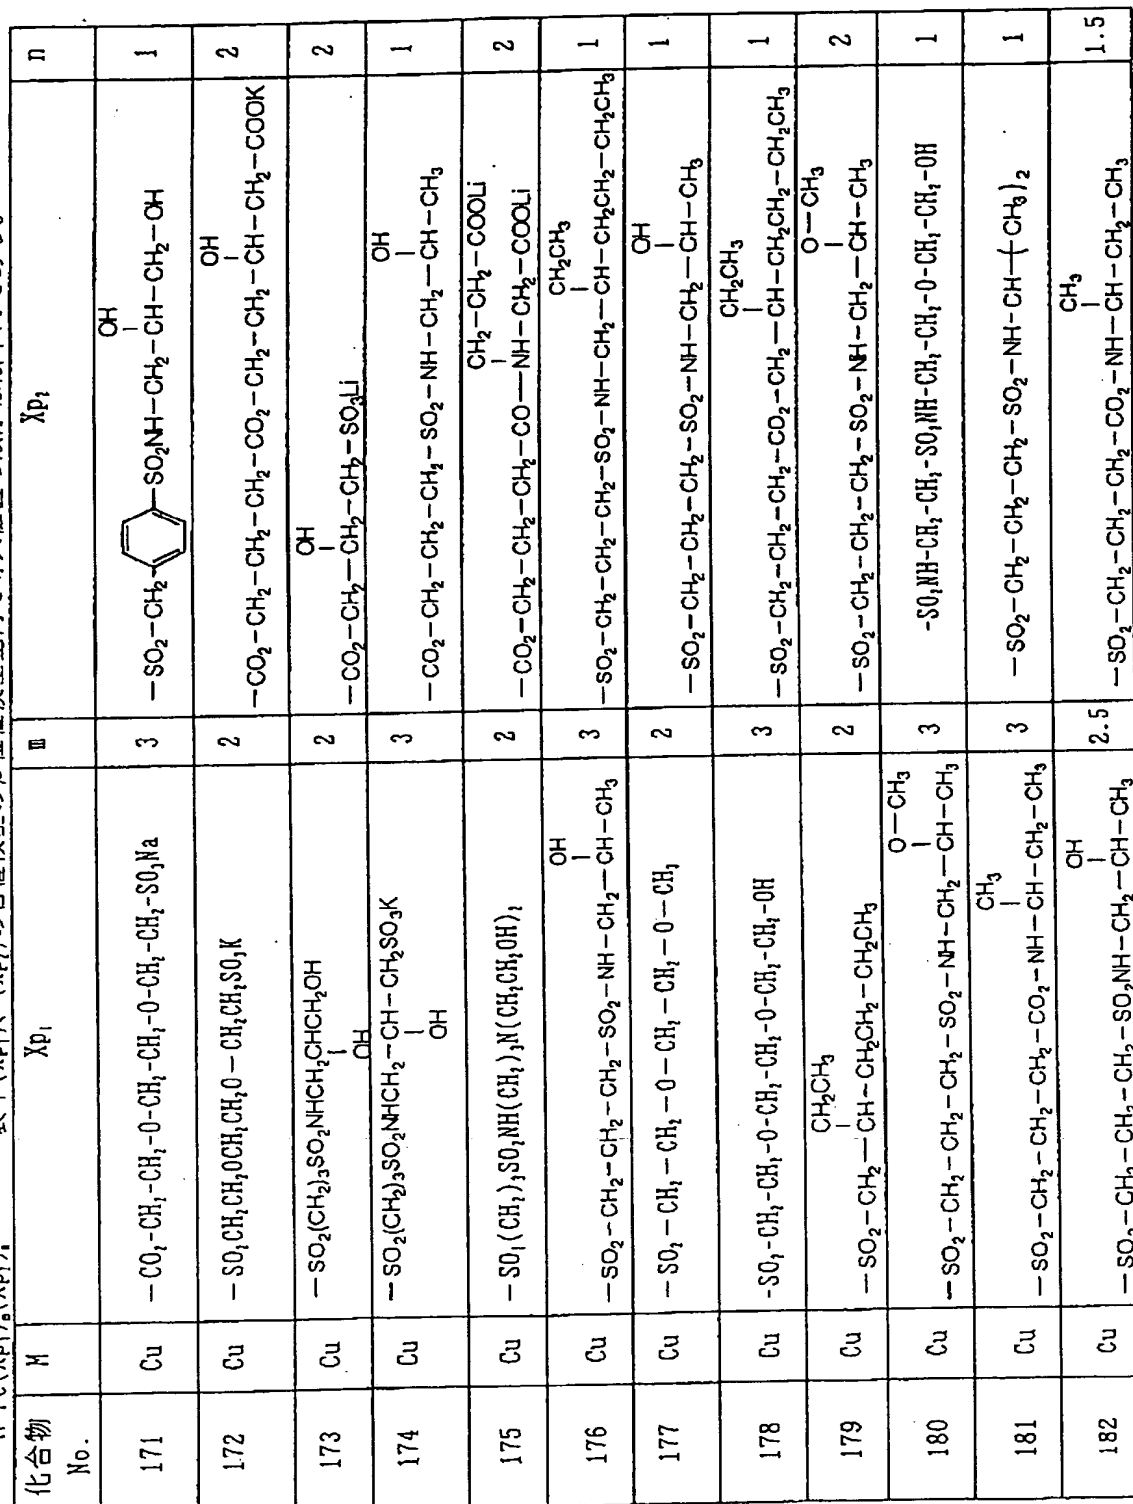 化合物 No. M Xp₁ m Xp₂ n
171 Cu —CO₂-CH₂-CH₂-O-CH₂-CH₂-O-CH₂-CH₂-SO₃Na 3 —SO₂—CH₂— —SO₂NH—CH₂—CH(OH)—CH₂—OH 1
172 Cu —SO₂CH₂CH₂OCH₂CH₂O—CH₂CH₂SO₃K 2 —CO₂—CH₂—CH₂—CH₂—CO₂—CH₂—CH₂—CH(OH)—CH₂—COOK 2
173 Cu —SO₂(CH₂)₃SO₂NHCH₂CH(OH)CH₂OH 2 —CO₂—CH₂—CH(OH)—CH₂—SO₃Li 2
174 Cu —SO₂(CH₂)₃SO₂NHCH₂—CH(OH)—CH₂SO₃K 3 —CO₂—CH₂—CH₂—CH₂—SO₂—NH—CH₂—CH(OH)—CH₃ 1
175 Cu —SO₂(CH₂)₃SO₂NH(CH₂)₃N(CH₂CH₂OH)₂ 2 —CO₂—CH₂—CH₂—CH₂—CO—N(CH₂—CH₂—COOLi)H—CH₂—COOLi 2
176 Cu —SO₂—CH₂—CH₂—CH₂—SO₂—NH—CH₂—CH(OH)—CH₃ 3 —SO₂—CH₂—CH₂—CH₂—SO₂—NH—CH₂—CH(CH₂CH₃)—CH₂CH₂—CH₂CH₃ 1
177 Cu —SO₂—CH₂—CH₂—O—CH₂—CH₂—O—CH₃ 2 —SO₂—CH₂—CH₂—CH₂—SO₂—NH—CH₂—CH(OH)—CH₃ 1
178 Cu -SO₂-CH₂-CH₂-O-CH₂-CH₂-O-CH₂-CH₂-OH 3 —SO₂—CH₂—CH₂—CH₂—CO₂—CH₂—CH(CH₂CH₃)—CH₂CH₂—CH₂CH₃ 1
179 Cu —SO₂—CH₂—CH(CH₂CH₃)—CH₂CH₂—CH₂CH₃ 2 —SO₂—CH₂—CH₂—CH₂—SO₂—NH—CH₂—CH(O—CH₃)—CH₃ 2
180 Cu —SO₂—CH₂—CH₂—CH₂—SO₂—NH—CH₂—CH(O—CH₃)—CH₃ 3 -SO₂NH-CH₂-CH₂-SO₂NH-CH₂-CH₂-O-CH₂-CH₂-OH 1
181 Cu —SO₂—CH₂—CH₂—CH₂—CO₂—NH—CH(CH₃)—CH₂—CH₃ 3 —SO₂—CH₂—CH₂—CH₂—SO₂—NH—CH—(CH₃)₂ 1
182 Cu —SO₂—CH₂—CH₂—CH₂—SO₂NH—CH₂—CH(OH)—CH₃ 2.5 —SO₂—CH₂—CH₂—CH₂—CO₂—NH—CH(CH₃)—CH₂—CH₃ 1.5